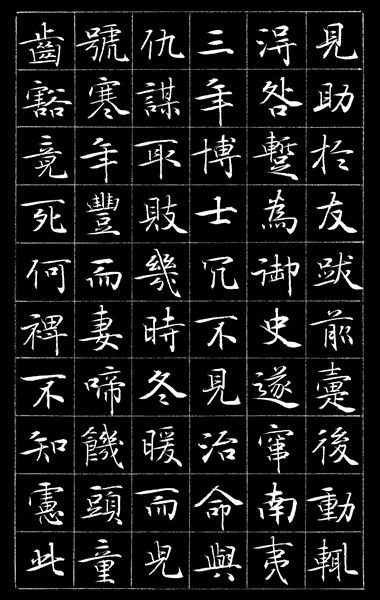 見助於友跋前疐後動輒
得咎蹔為御史遂竄南夷
三年博士冗不見治命與
仇謀取敗幾時冬暖而兒
號寒年豐而妻啼饑頭童
齒豁竟死何裨不知慮此